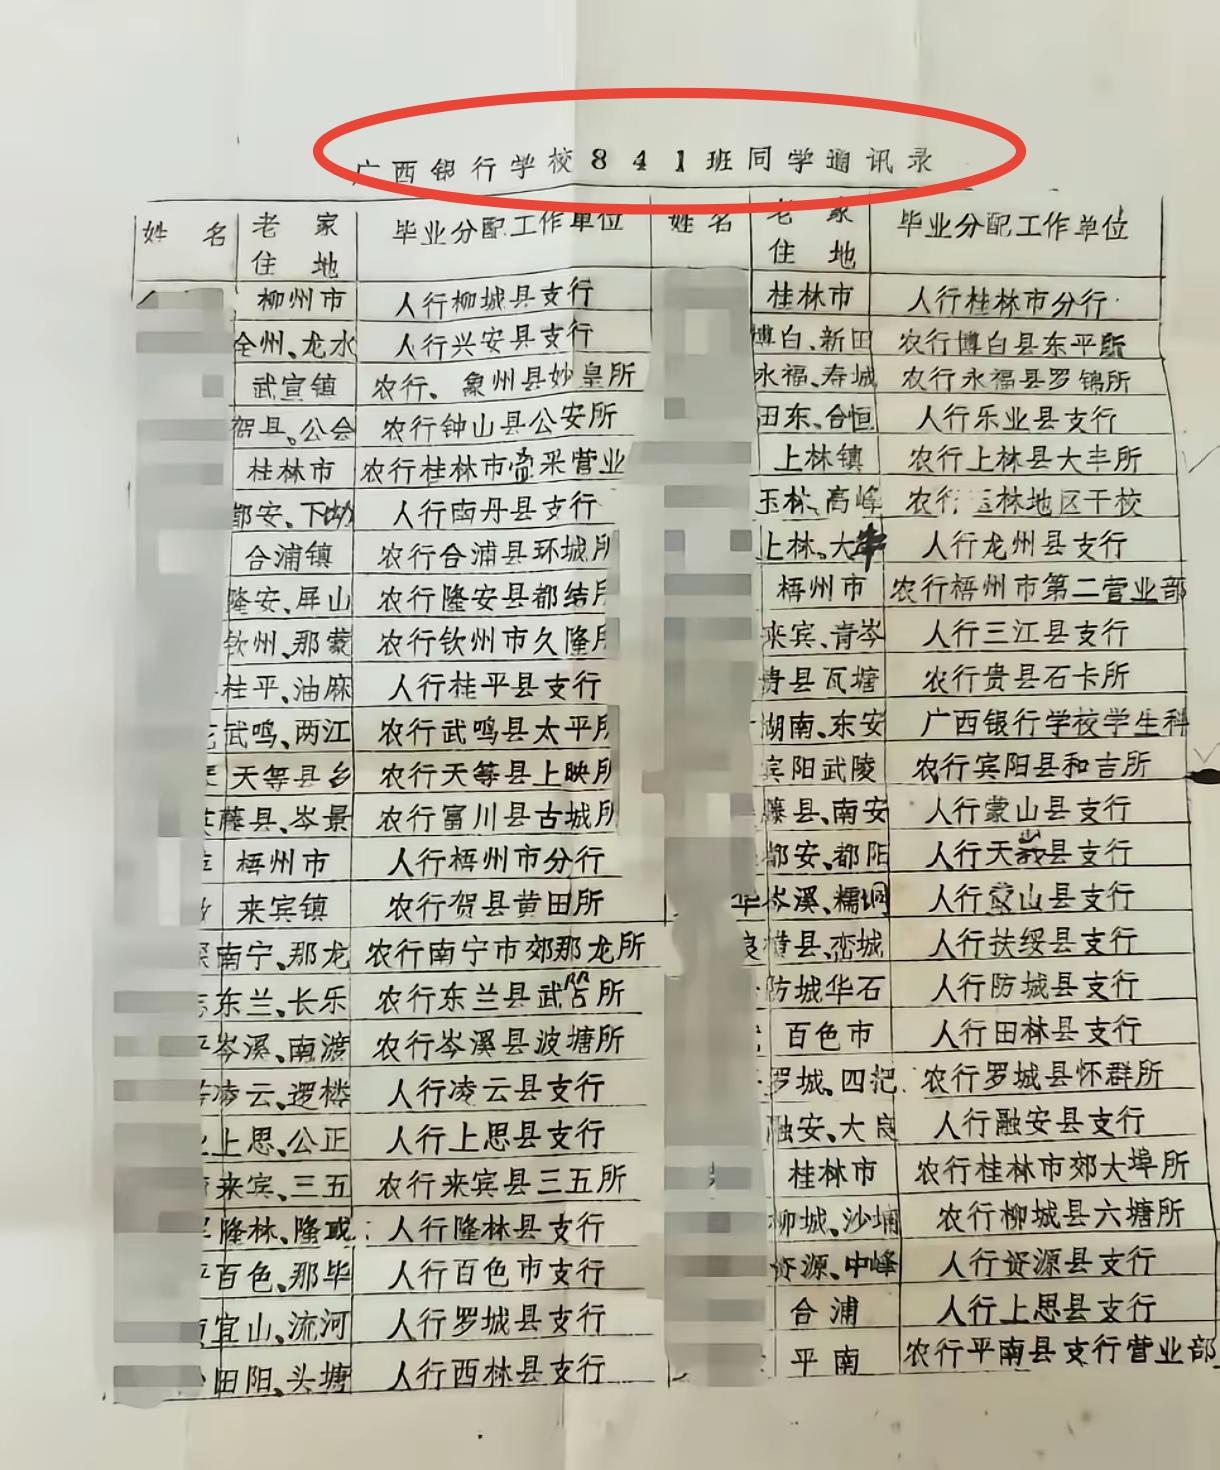 广西银行学校841班同学通讯录
姓名 老家住地 毕业分配工作单位 姓名 老家住地 毕业分配工作单位
柳州市 人行柳城县支行 桂林市 人行桂林市分行
全州、龙水 人行兴安县支行 博白、新田 农行博白县东平所
武宣镇 农行、象州县妙皇所 永福、寿城 农行永福县罗锦所
贺县、公会 农行钟山县公安所 田东、合恒 人行乐业县支行
桂林市 农行桂林市 营业 上林镇 农行上林县大丰所
都安、下坳 人行南丹县支行 玉林、高峰 农行玉林地区干校
合浦镇 农行合浦县环城所 上林、大丰 人行龙州县支行
隆安、屏山 农行隆安县都结所 梧州市 农行梧州市第二营业部
钦州、那蒙 农行钦州市久隆所 来宾、青岑 人行三江县支行
桂平、油麻 人行桂平县支行 贵县瓦塘 农行贵县石卡所
武鸣、两江 农行武鸣县太平所 湖南、东安 广西银行学校学生科
天等县乡 农行天等县上映所 宾阳武陵 农行宾阳县和吉所
藤县、岑景 农行富川县古城所 藤县、南安 人行蒙山县支行
梧州市 人行梧州市分行 都安、都阳 人行天峨县支行
来宾镇 农行贺县黄田所 华 岑溪、糯垌 人行蒙山县支行
南宁、那龙 农行南宁市郊那龙所 良 横县、峦城 人行扶绥县支行
东兰、长乐 农行东兰县武 所 防城华石 人行防城县支行
岑溪、南渡 农行岑溪县波塘所 百色市 人行田林县支行
凌云、逻楼 人行凌云县支行 罗城、四把 农行罗城县怀群所
上思、公正 人行上思县支行 融安、大良 人行融安县支行
来宾、三五 农行来宾县三五所 桂林市 农行桂林市郊大埠所
隆林、隆或 人行隆林县支行 柳城、沙埔 农行柳城县六塘所
百色、那毕 人行百色市支行 资源、中峰 人行资源县支行
宜山、流河 人行罗城县支行 合浦 人行上思县支行
田阳、头塘 人行西林县支行 平南 农行平南县支行营业部